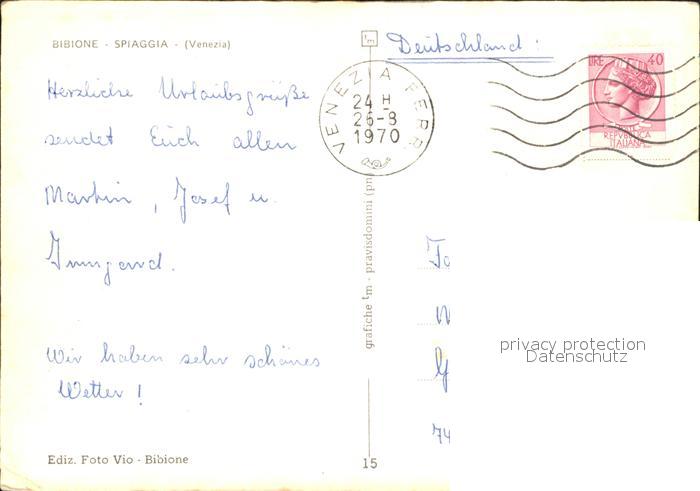 BIBIONE - SPIAGGIA - (Venezia)
Herzliche Urlaubsgrüße
sendet Euch allen
Martin, Josef u.
Irmgard.
Wir haben sehr schönes
Wetter!
Ediz. Foto Vio - Bibione
grafiche tm - pravisdomini (pn)
15
tm
Deutschland:
VENEZIA FERR.
24 H
26-8
1970
LIRE 40
POSTE
REPVBBLICA
ITALIANA
74
privacy protection
Datenschutz